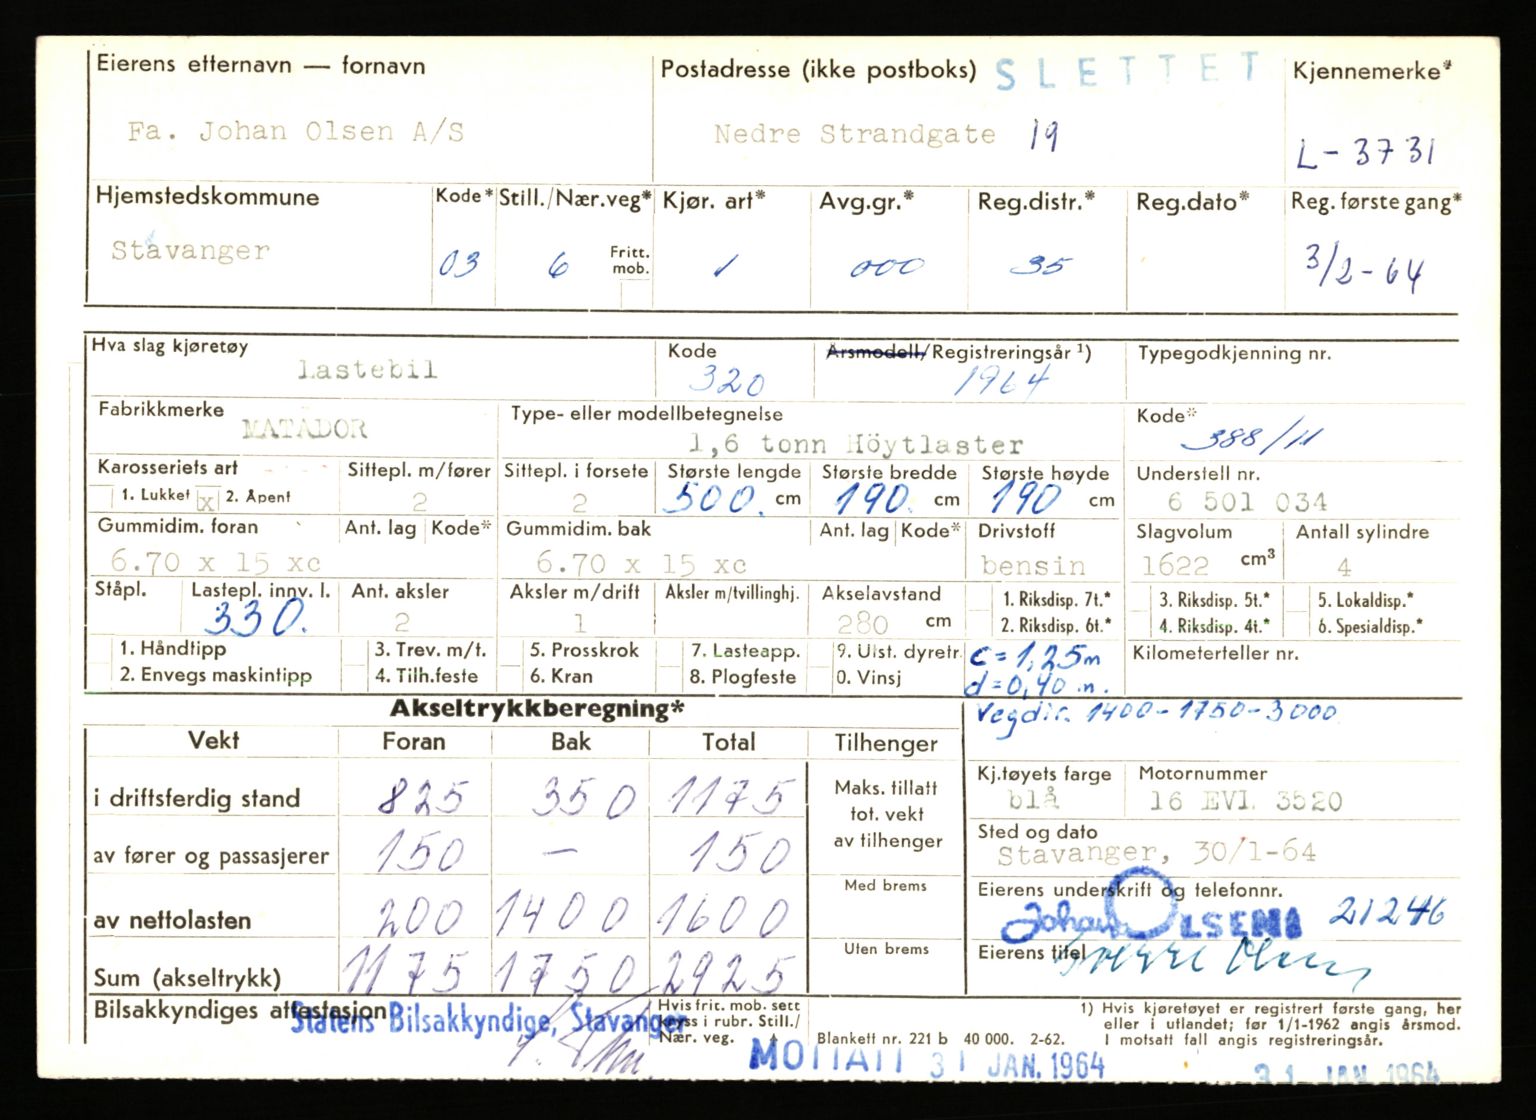 Eierens etternavn — fornavn Postadresse (ikke postboks) SLETTET Kjennemerke*
Fa. Johan Olsen A/S Nedre Strandgate 19 L-3731
Hjemstedskommune Kode* Still./Nær.veg* Kjør. art* Avg.gr.* Reg.distr.* Reg.dato* Reg. første gang*
Stavanger 03 6 Fritt. mob. 1 000 35 3/2-64
Hva slag kjøretøy Kode Årsmodell/Registreringsår ¹) Typegodkjenning nr.
Lastebil 320 1964
Fabrikkmerke Type- eller modellbetegnelse Kode*
MATADOR 1,6 tonn Höytlaster 388/11
Karosseriets art Sittepl. m/fører Sittepl. i forsete Største lengde Største bredde Største høyde Understell nr.
1. Lukket x 2. Åpent 2 2 500. cm 190. cm 190 cm 6 501 034
Gummidim. foran Ant. lag Kode* Gummidim. bak Ant. lag Kode* Drivstoff Slagvolum Antall sylindre
6.70 x 15 xc 6.70 x 15 xc bensin 1622 cm³ 4
Ståpl. Lastepl. innv. l. Ant. aksler Aksler m/drift Aksler m/tvillinghj. Akselavstand 1. Riksdisp. 7t.* 3. Riksdisp. 5t.* 5. Lokaldisp.*
330. 2 1 280 cm 2. Riksdisp. 6t.* 4. Riksdisp. 4t.* 6. Spesialdisp.*
1. Håndtipp 3. Trev. m/t. 5. Prosskrok 7. Lasteapp. 9. Utst. dyretr. c = 1,25m Kilometerteller nr.
2. Envegs maskintipp 4. Tilh.feste 6. Kran 8. Plogfeste 0. Vinsj d = 0,40 m.
Akseltrykkberegning* Vegdir. 1400-1750-3000
Vekt Foran Bak Total Tilhenger
Kj.tøyets farge Motornummer
i driftsferdig stand 825 350 1175 Maks. tillatt tot. vekt av tilhenger blå 16 EVL 3520
Sted og dato
av fører og passasjerer 150 — 150 Stavanger, 30/1-64
Med brems Eierens underskrift og telefonnr.
av nettolasten 200 1400 1600 Johan OLSEN 21246
Uten brems Eierens titel
Sum (akseltrykk) 1175 1750 2925
Bilsakkyndiges attestasjon Statens Bilsakkyndige, Stavanger
Hvis frit. mob. sett kryss i rubr. Still./ Nær. veg.
Blankett nr. 221 b 40 000. 2-62.
1) Hvis kjøretøyet er registrert første gang, her
eller i utlandet; før 1/1-1962 angis årsmod.
I motsatt fall angis registreringsår.
MOTTATT 31 JAN. 1964 31 JAN 1964